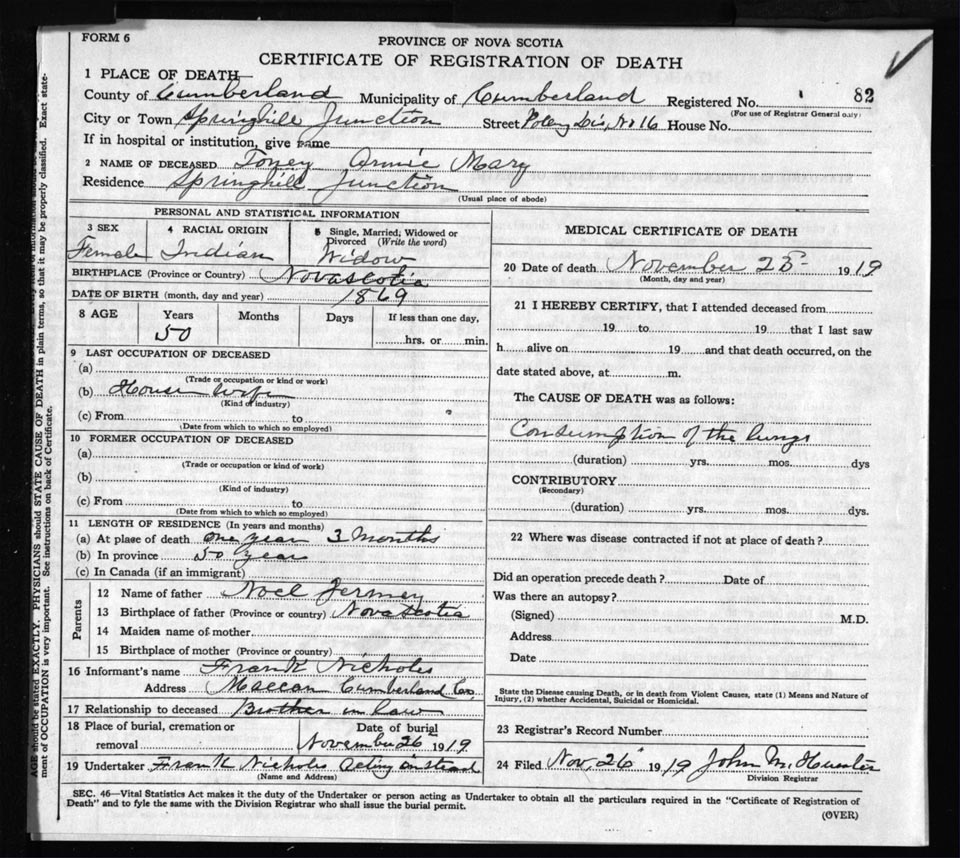 FORM 6
PROVINCE OF NOVA SCOTIA
CERTIFICATE OF REGISTRATION OF DEATH
1 PLACE OF DEATH
County of Cumberland Municipality of Cumberland Registered No. 82
(For use of Registrar General only)
City or Town Springhill Junction Street Poley Dis, No 16 House No.
If in hospital or institution, give name
2 NAME OF DECEASED Toney Annie Mary
Residence Springhill Junction
(Usual place of abode)
PERSONAL AND STATISTICAL INFORMATION
3 SEX
Female
4 RACIAL ORIGIN
Indian
5 Single, Married, Widowed or Divorced (Write the word)
Widow
BIRTHPLACE (Province or Country) Novascotia
DATE OF BIRTH (month, day and year) 1869
8 AGE Years Months Days If less than one day,
50 hrs. or min.
9 LAST OCCUPATION OF DECEASED
(a)
(Trade or occupation or kind or work)
(b) House Wife
(Kind of industry)
(c) From to
(Date from which to which so employed)
10 FORMER OCCUPATION OF DECEASED
(a)
(Trade or occupation or kind of work)
(b)
(Kind of industry)
(c) From to
(Date from which to which so employed)
11 LENGTH OF RESIDENCE (In years and months)
(a) At place of death one year 3 Months
(b) In province 50 year
(c) In Canada (if an immigrant)
Parents
12 Name of father Noel Jermey
13 Birthplace of father (Province or country) Nova Scotia
14 Maiden name of mother
15 Birthplace of mother (Province or country)
16 Informant's name Frank Nicholes
Address Maccan Cumberland Co
17 Relationship to deceased Brother in law
18 Place of burial, cremation or removal
Date of burial
November 26 1919
19 Undertaker Frank Nicholes acting instead
(Name and Address)
MEDICAL CERTIFICATE OF DEATH
20 Date of death November 25 1919
(Month, day and year)
21 I HEREBY CERTIFY, that I attended deceased from
19 to 19 that I last saw
h alive on 19 and that death occurred, on the
date stated above, at m.
The CAUSE OF DEATH was as follows:
Consumption of the lungs
(duration) yrs. mos. dys
CONTRIBUTORY
(Secondary)
(duration) yrs. mos. dys.
22 Where was disease contracted if not at place of death?
Did an operation precede death? Date of
Was there an autopsy?
(Signed) M.D.
Address
Date
State the Disease causing Death, or in death from Violent Causes, state (1) Means and Nature of
Injury, (2) whether Accidental, Suicidal or Homicidal.
23 Registrar's Record Number
24 Filed Nov, 26 1919 John M. Hunter
Division Registrar
SEC. 46—Vital Statistics Act makes it the duty of the Undertaker or person acting as Undertaker to obtain all the particulars required in the "Certificate of Registration of
Death" and to fyle the same with the Division Registrar who shall issue the burial permit.
(OVER)
AGE should be stated EXACTLY. PHYSICIANS should STATE CAUSE OF DEATH in plain terms, so that it may be properly classified. Exact state-
ment of OCCUPATION is very important. See instructions on back of Certificate.